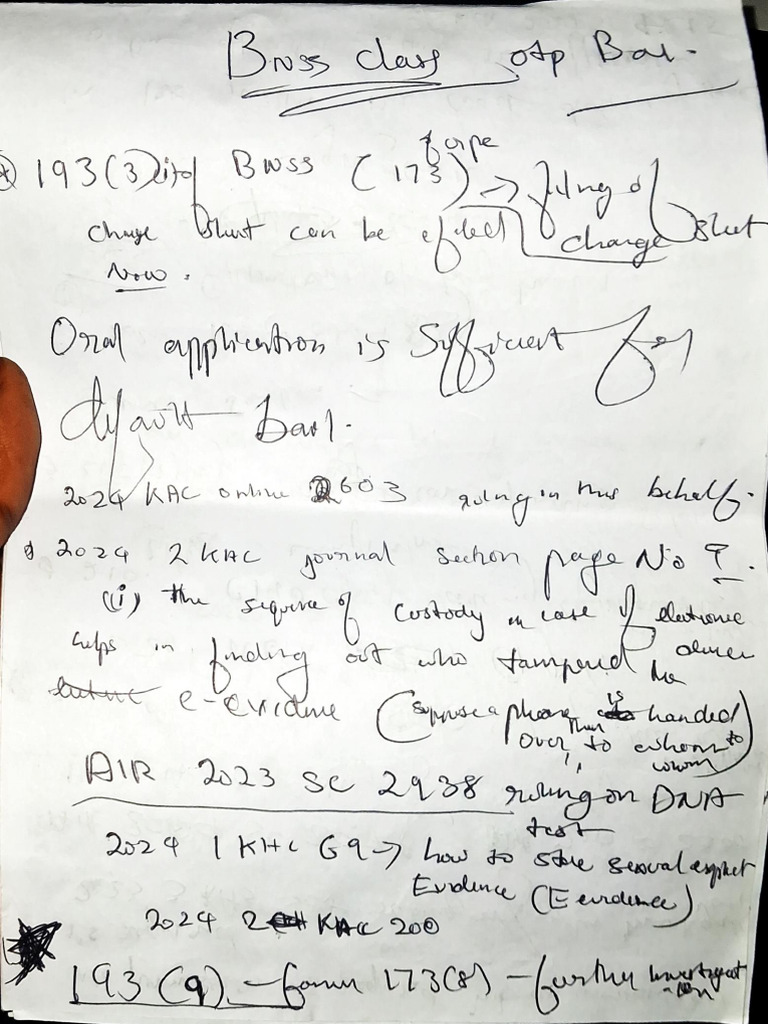 BNSS class otp Bar.
193(3)(ii) of BNSS (173 of crpc) → filing of
charge sheet can be efiled charge sheet
Now.
Oral application is sufficient for
default bail.
2024 KHC online 603 ruling in this behalf.
2024 2 KHC journal section page No 9.
(i) the sequence of custody in case of electronic device
helps in finding out who tampered the
e-evidence (suppose a phone is handed
over then to whom to whom)
AIR 2023 SC 2938 ruling on DNA
test
2024 1 KHC 69 → how to store sexual explicit
Evidence (E evidence)
2024 2 KHC 200
193(9) - former 173(8) - further investigation